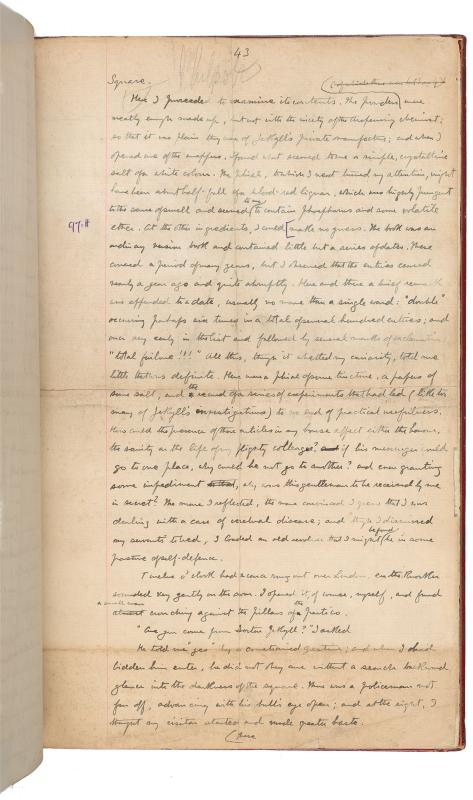 43
Square.
Here I proceeded to examine its contents. The powders were
neatly enough made up, but not with the nicety of the dispensing chemist;
so that it was plain they were of Jekyll's private manufacture; and when I
opened one of the wrappers, I found what seemed to me a simple, crystalline
salt of a white colour. The phial, to which I next turned my attention, might
have been about half-full of a blood-red liquor, which was highly pungent
to the sense of smell and seemed to me to contain phosphorus and some volatile
ether. At the other ingredients, I could [make no guess. The book was an
ordinary version book and contained little but a series of dates. These
covered a period of many years, but I observed that the entries ceased
nearly a year ago and quite abruptly. Here and there a brief remark
was appended to a date, usually no more than a single word: "double"
occurring perhaps six times in a total of several hundred entries; and
once very early in the list and followed by several marks of exclamation,
"total failure!!!" All this, though it whetted my curiosity, told me
little that was definite. Here was a phial of some tincture, a papers of
some salt, and the record of a series of experiments that had led (like too
many of Jekyll's investigations) to no end of practical usefulness.
How could the presence of these articles in my house affect either the honour,
the sanity, or the life of my flighty colleague? if his messenger could
go to one place, why could he not go to another? and even granting
some impediment, why was this gentleman to be received by me
in secret? The more I reflected, the more convinced I grew that I was
dealing with a case of cerebral disease; and though I dismissed
my servants to bed, I loaded an old revolver that I might be found in some
posture of self-defence.
Twelve o'clock had scarce rung out over London, ere the knocker
sounded very gently on the door. I opened it, of course, myself, and found
a small man crouching against the pillars of the portico.
"Are you come from Doctor Jekyll?" I asked
He told me "yes" by a constrained gesture; and when I had
bidden him enter, he did not obey me without a search backward
glance into the darkness of the square. There was a policeman not
far off, advancing with his bull's eye open; and at the sight, I
thought my visitor started and made greater haste.